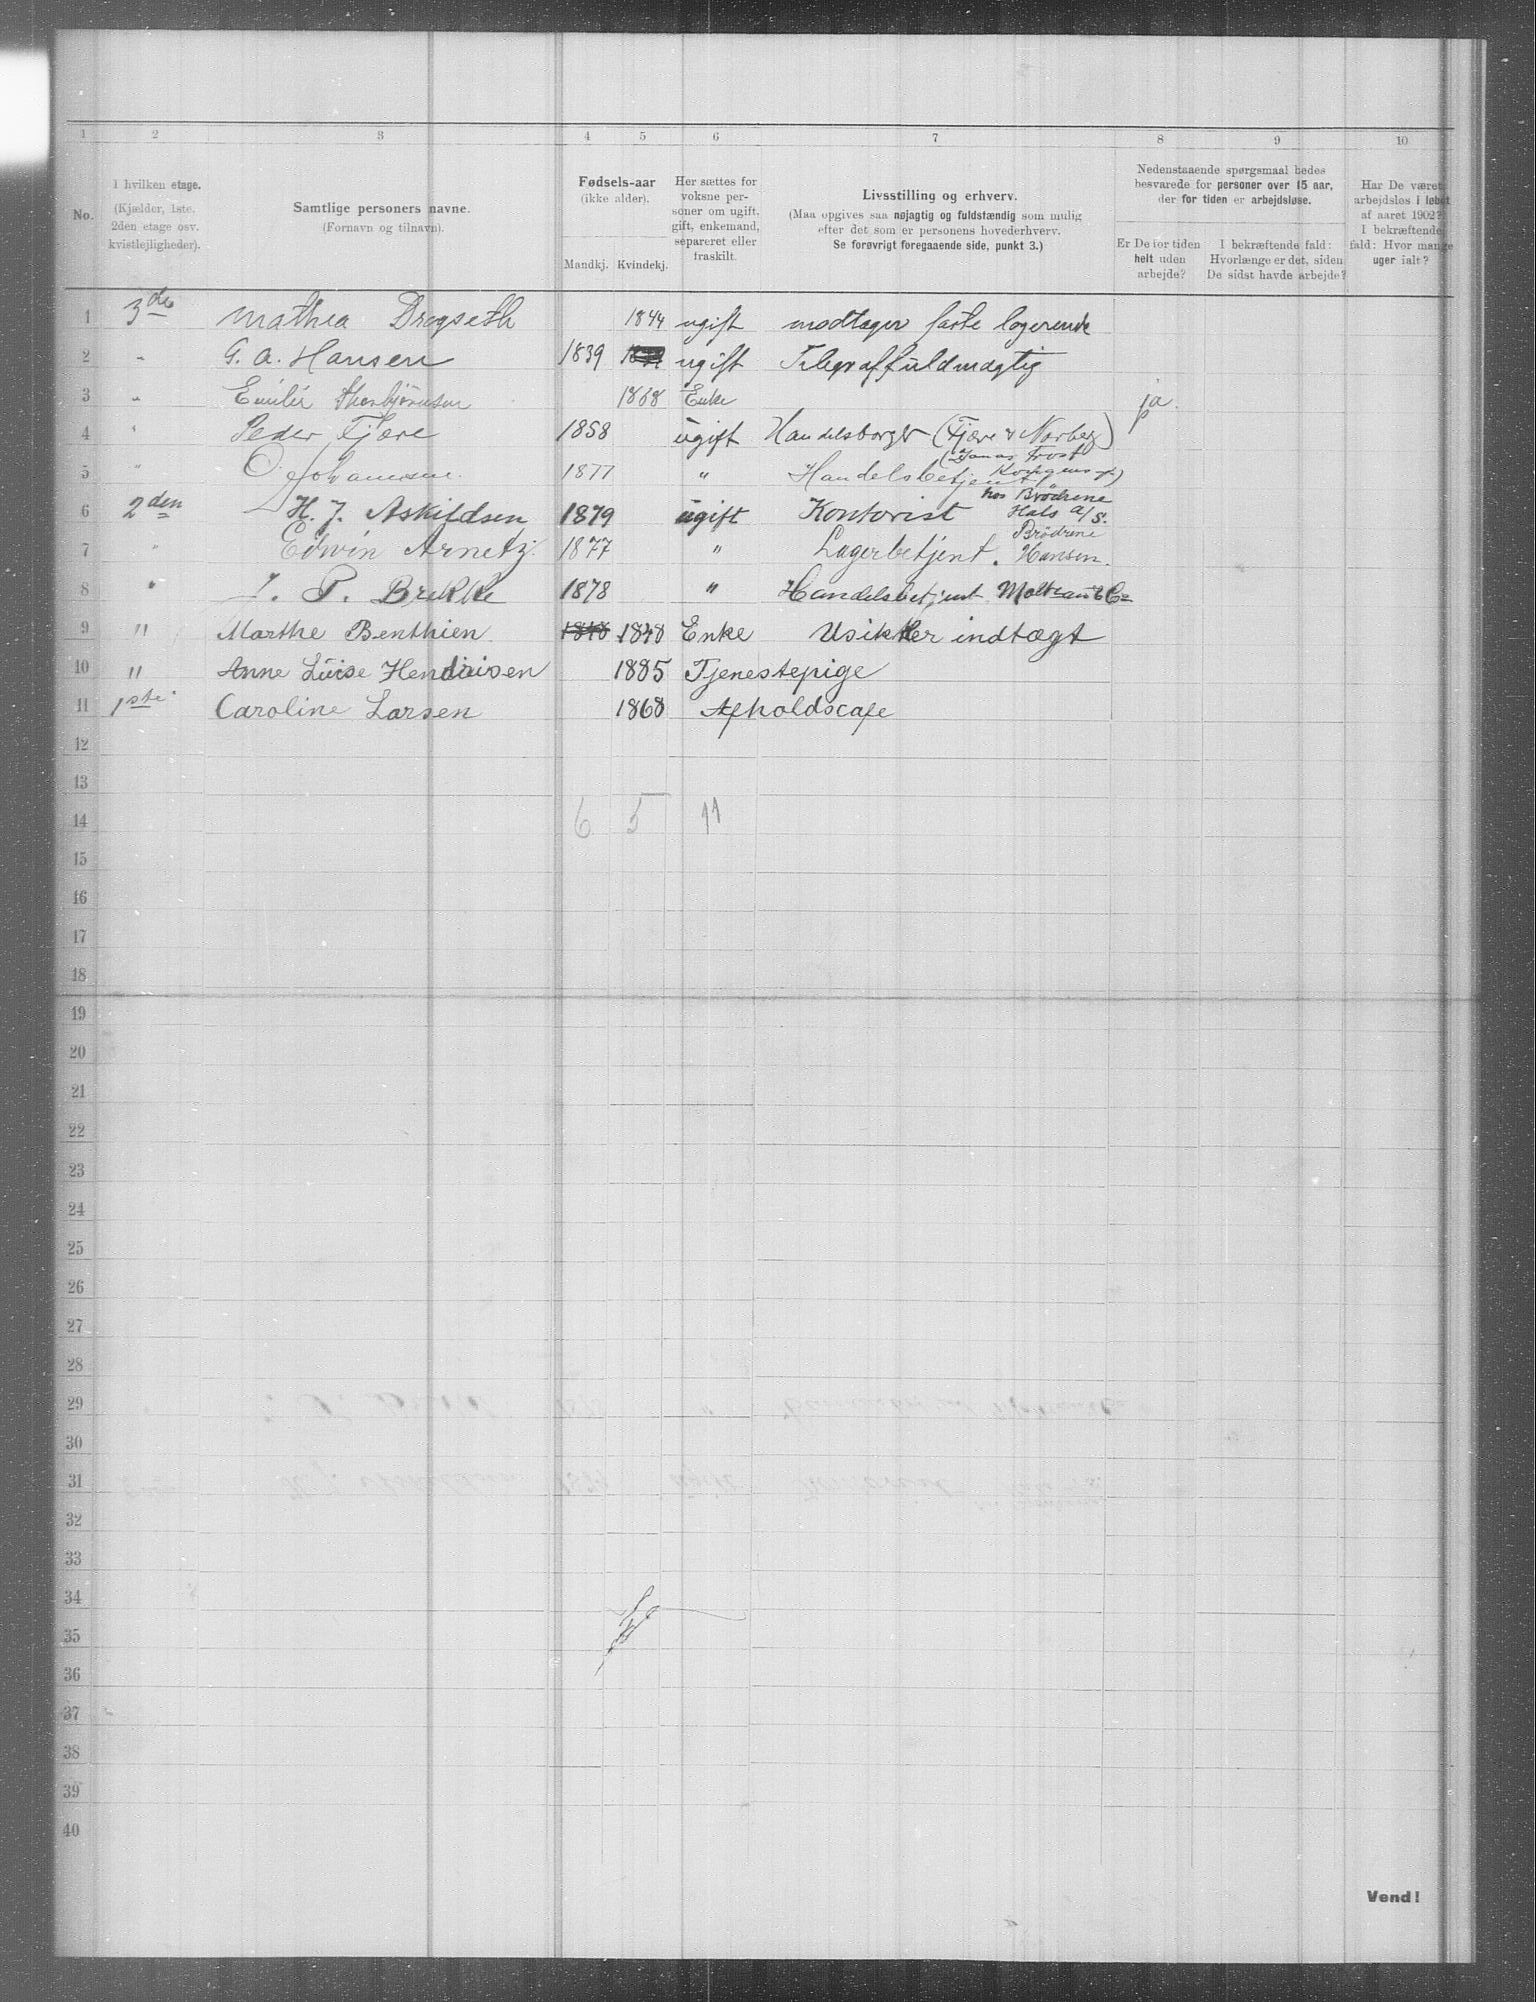 1 2 3 4 5 6 7 8 9 10
No.
I hvilken etage.
(Kjælder, 1ste.
2den etage osv.
kvistlejligheder).
Samtlige personers navne.
(Fornavn og tilnavn).
Fødsels-aar
(ikke alder).
Mandkj. Kvindekj.
Her sættes for
voksne per-
soner om ugift,
gift, enkemand,
separeret eller
fraskilt.
Livsstilling og erhverv.
(Maa opgives saa nøjagtig og fuldstændig som mulig
efter det som er personens hovederhverv.
Se forøvrigt foregaaende side, punkt 3.)
Nedenstaaende spørgsmaal bedes
besvarede for personer over 15 aar,
der for tiden er arbejdsløse.
Er De for tiden
helt uden
arbejde?
I bekræftende fald:
Hvorlænge er det, siden
De sidst havde arbejde?
Har De været
arbejdsløs i løbet
af aaret 1902?
I bekræftende
fald: Hvor mange
uger ialt?
1 3die Mathea Dragseth 1844 ugift modtager faste logerende
2 " G. A. Hansen 1839 ugift Telegraffuldmægtig
3 " Emilie Thorbjørnsen 1868 Enke ja.
4 " Peder Fjære 1858 ugift Handelsborger (Fjære & Norberg)
5 " O Johannesen 1877 " Handelsbetjent (Jonas Frost Kongens g.)
6 2den H. J. Askildsen 1879 ugift Kontorist hos Brødrene Hals a/s.
7 " Edwin Arnetz. 1877 " Lagerbetjent. Brødrene Hansen.
8 " J. P. Brekke 1878 " Handelsbetjent Moltzau & Co
9 " Marthe Benthien 1848 1848 Enke Usikker indtægt
10 " Anne Luise Hendriisen 1885 Tjenestepige
11 1ste Caroline Larsen 1868 Afholdscafe
12
13
14 6 5 11
15
16
17
18
19
20
21
22
23
24
25
26
27
28
29
30
31
32
33
34
35
36
37
38
39
40
Vend!